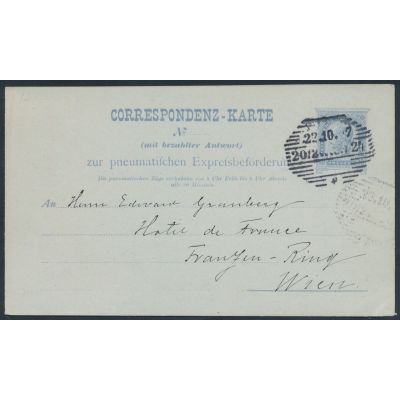 CORRESPONDENZ-KARTE
№
(mit bezahlter Antwort)
zur pneumatischen Expressbeförderung
Die pneumatischen Züge verkehren von 8 Uhr Früh bis 9 Uhr Abends
alle 20 Minuten.
An Herrn Edward Granberg
Hotel de France
Franzen-Ring
Wien
22.10. 7